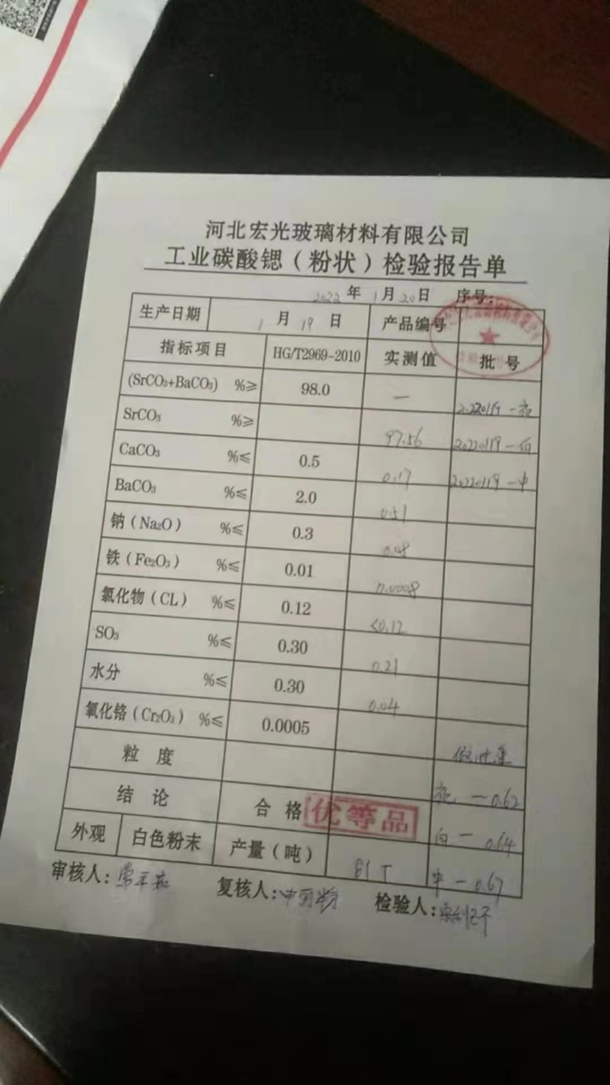 河北宏光玻璃材料有限公司
工业碳酸锶（粉状）检验报告单
2022年 1月20日 序号:
生产日期 1 月 19 日 产品编号
指标项目 HG/T2969-2010 实测值 批 号
(SrCO₃+BaCO₃) %≥ 98.0 —
SrCO₃ %≥ 97.56
CaCO₃ %≤ 0.5 0.17
BaCO₃ %≤ 2.0 0.51
钠(Na₂O) %≤ 0.3
铁(Fe₂O₃) %≤ 0.01 0.0008
氯化物(CL) %≤ 0.12 <0.12
SO₃ %≤ 0.30 0.21
水分 %≤ 0.30 0.04
氧化铬(Cr₂O₃) %≤ 0.0005
粒 度
结 论 合格 优等品 — 0.62
外观 白色粉末 产量(吨) 81 T — 0.64
— 0.67
审核人: 复核人: 检验人: